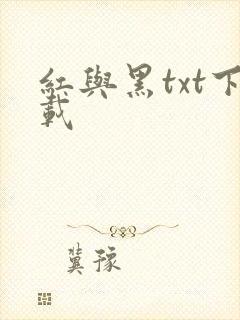 紅與黑txt下
載
冀豫